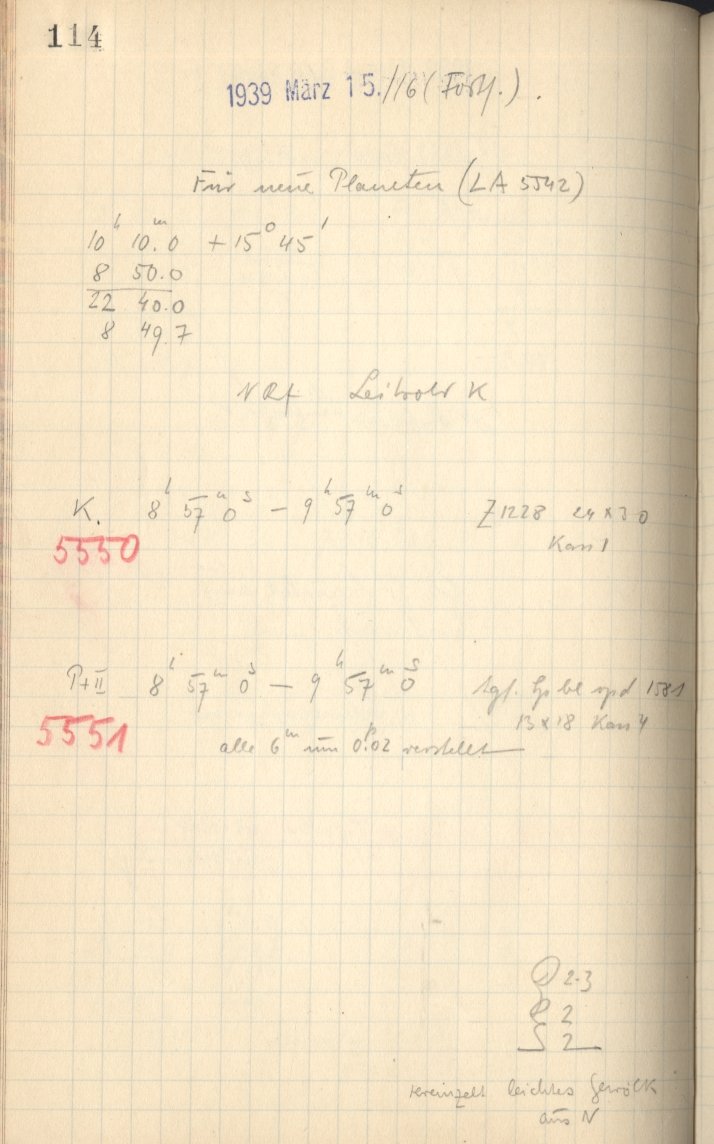 114
1939 März 15./16 (Forts.).
Für neue Planeten (LA 5542)
10ʰ 10ᵐ.0 + 15° 45'
8 50.0
22 40.0
8 49.7
N Rf K
K. 8ʰ 57ᵐ 0ˢ — 9ʰ 57ᵐ 0ˢ Z 1228 24 x 30
5550 Kass 1
P+II 8ʰ 57ᵐ 0ˢ — 9ʰ 57ᵐ 0ˢ Agf. 1581
5551 13 x 18 Kass 4
alle 6ᵐ um 0ᵖ.02 verstellt
2-3
2
2
vereinzelt leichtes Gewölk
aus N